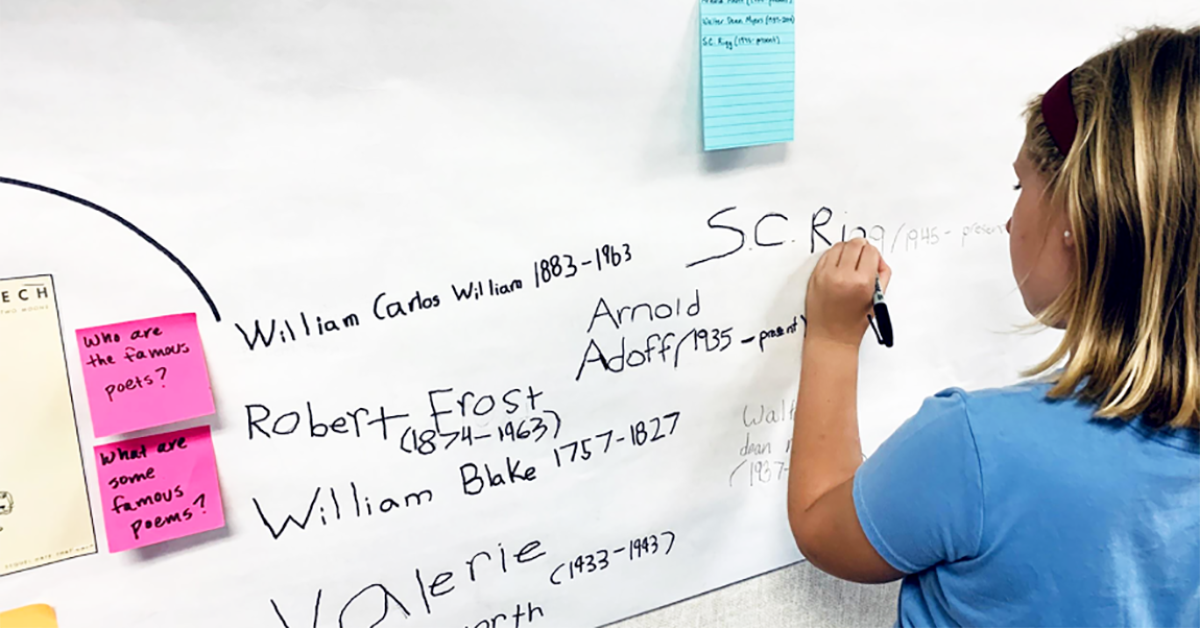 ECH
TWO MOONS
Who are
the famous
poets?
What are
some
famous
poems?
William Carlos William 1883-1963
Robert Frost
(1874-1963)
William Blake 1757-1827
Valerie
(1933-1943)
orth
Walter Dean Myers (1937-2014)
S.C. Rigg (1945-present)
S.C. Rigg (1945 - present
Arnold
Adoff (1935 - present)
Walt
dean
(1937-